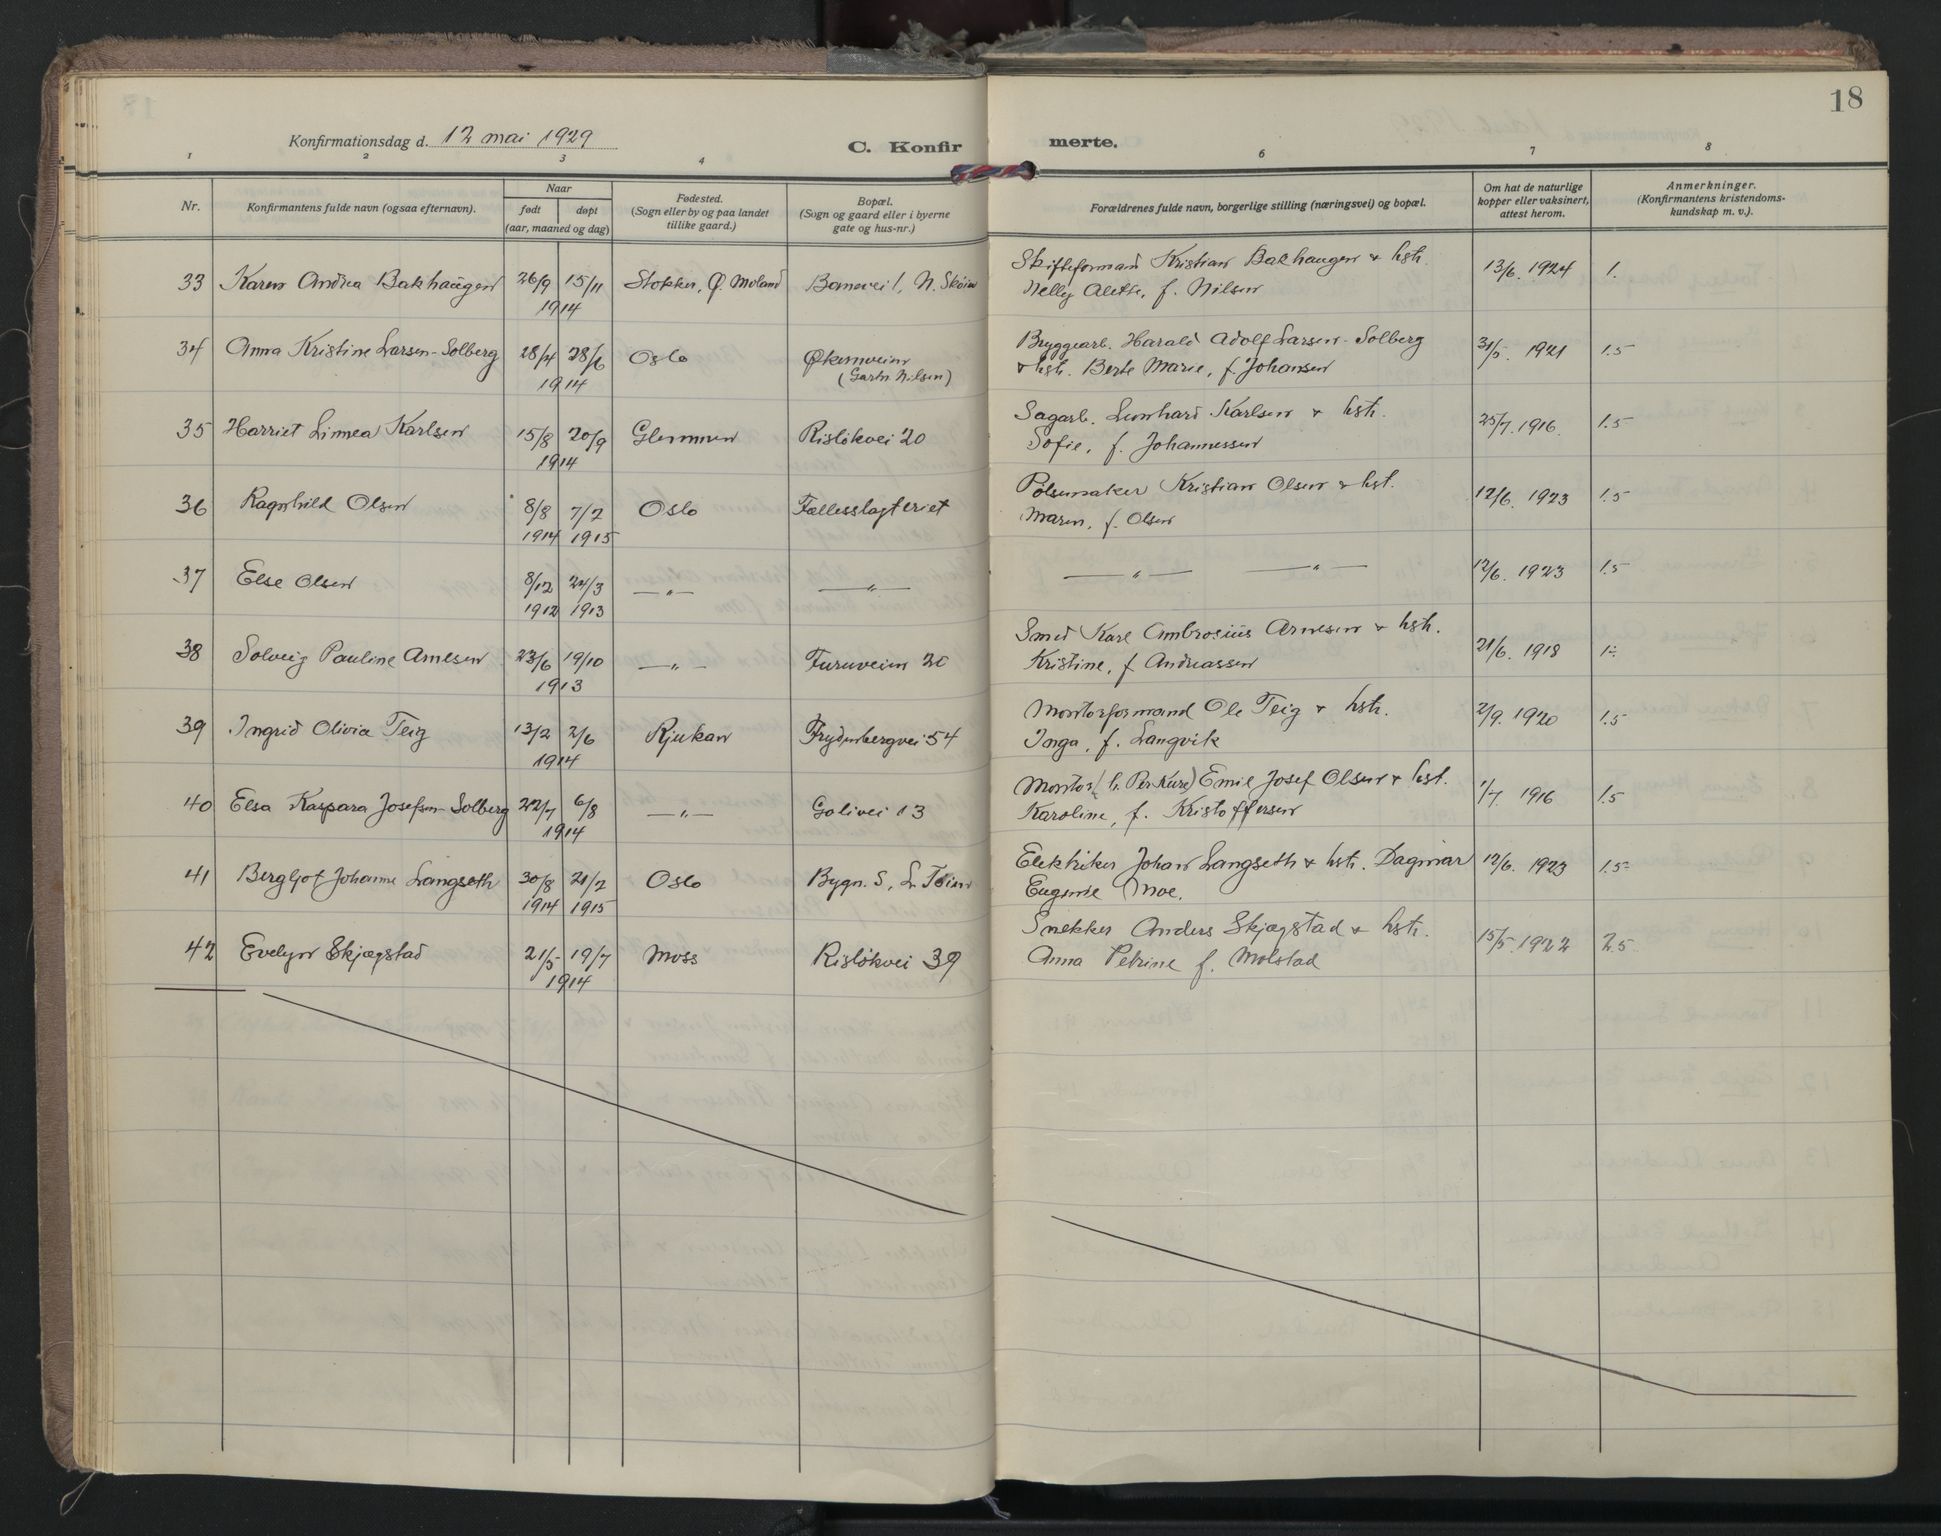 18
Konfirmationsdag d. 12 mai 1929
C. Konfirmerte.
1 2 3 4 6 7 8
Nr.
Konfirmantens fulde navn (ogsaa efternavn).
Naar
født døpt
(aar, maaned og dag)
Fødested.
(Sogn eller by og paa landet
tillike gaard.)
Bopæl.
(Sogn og gaard eller i byerne
gate og hus-nr.)
Forældrenes fulde navn, borgerlige stilling (næringsvei) og bopæl.
Om hat de naturlige
kopper eller vaksinert,
attest herom.
Anmerkninger.
(Konfirmantens kristendoms-
kundskap m. v.).
33 Karen Andrea Bakhaugen 26/9 15/11 Stokken, Ø. Moland Banevei 1, N. Skøien Skifteformand Kristian Bakhaugen & hstr. 13/6. 1924 1.
1914 Nelly Alette, f. Nilsen
34 Anna Kristine Larsen-Solberg 28/4 28/6 Oslo Økernveien Bryggearb. Harald Adolf Larsen-Solberg 31/5. 1921 1.5
1914 (Gartn. Nilsen) & hstr. Berte Marie, f. Johansen
35 Harriet Linnea Karlsen 15/8 20/9 Glemmen Risløkvei 20 Sagarb. Leonhard Karlsen & hstr. 25/7. 1916. 1.5
1914 Sofie, f. Johannessen
36 Ragnhild Olsen 8/8 7/2 Oslo Fellesslagteriet Pølsemaker Kristian Olsen & hst. 12/6. 1923 1.5
1914 1915 Maren, f. Olsen
37 Else Olsen 8/12 24/3 —„— —„— —„— —„— 12/6. 1923 1.5
1912 1913
38 Solveig Pauline Arnesen 23/6 19/10 —„— Furuveien 20 Smed Karl Ambrosius Arnesen & hstr. 21/6. 1918
1913 Kristine, f. Andreassen
39 Ingrid Olivia Teig 13/2 2/6 Rjukan Frydenbergvei 54 Montørformand Ole Teig & hstr. 2/9. 1920 1.5
1914 Inga, f. Langvik
40 Elsa Kaspara Josefsen-Solberg 22/7 6/8 —„— Golivei 13 Montør Emil Josef Olsen & hst. 1/7. 1916 1.5
1914 Karoline, f. Kristoffersen
41 Bergljot Johanne Langseth 30/8 21/2 Oslo Bygn. S, L. Tøien Elektriker Johan Langseth & hstr. Dagmar 12/6. 1923 1.5
1914 1915 Eugenie Moe.
42 Evelyn Skjægstad 21/5 19/7 Moss Risløkvei 39 Snekker Anders Skjægstad & hstr. 15/5. 1922 2.5
1914 Anna Petrine f. Molstad